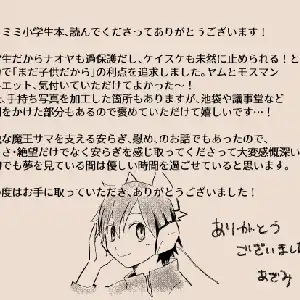 ミミ小学生本、読んでくださってありがとうございます！
生だからナオヤも過保護だし、ケイスケも未然に止められる！と
で「まだ子供だから」の利点を追求しました。ヤムとモスマン
エット、気付いていただけてよかった〜！
、手持ち写真を加工した箇所もありますが、池袋や議事堂など
をかけた部分もあるので褒めていただけて嬉しいです…！
な魔王サマを支える安らぎ、慰め、のお話でもあったので、
さ・絶望だけでなく安らぎを感じ取ってくださって大変感慨深い
でも夢を見ている間は優しい時間を過ごせていると思います。
度はお手に取っていただき、ありがとうございました！
ありがとう
ございました
あざみ